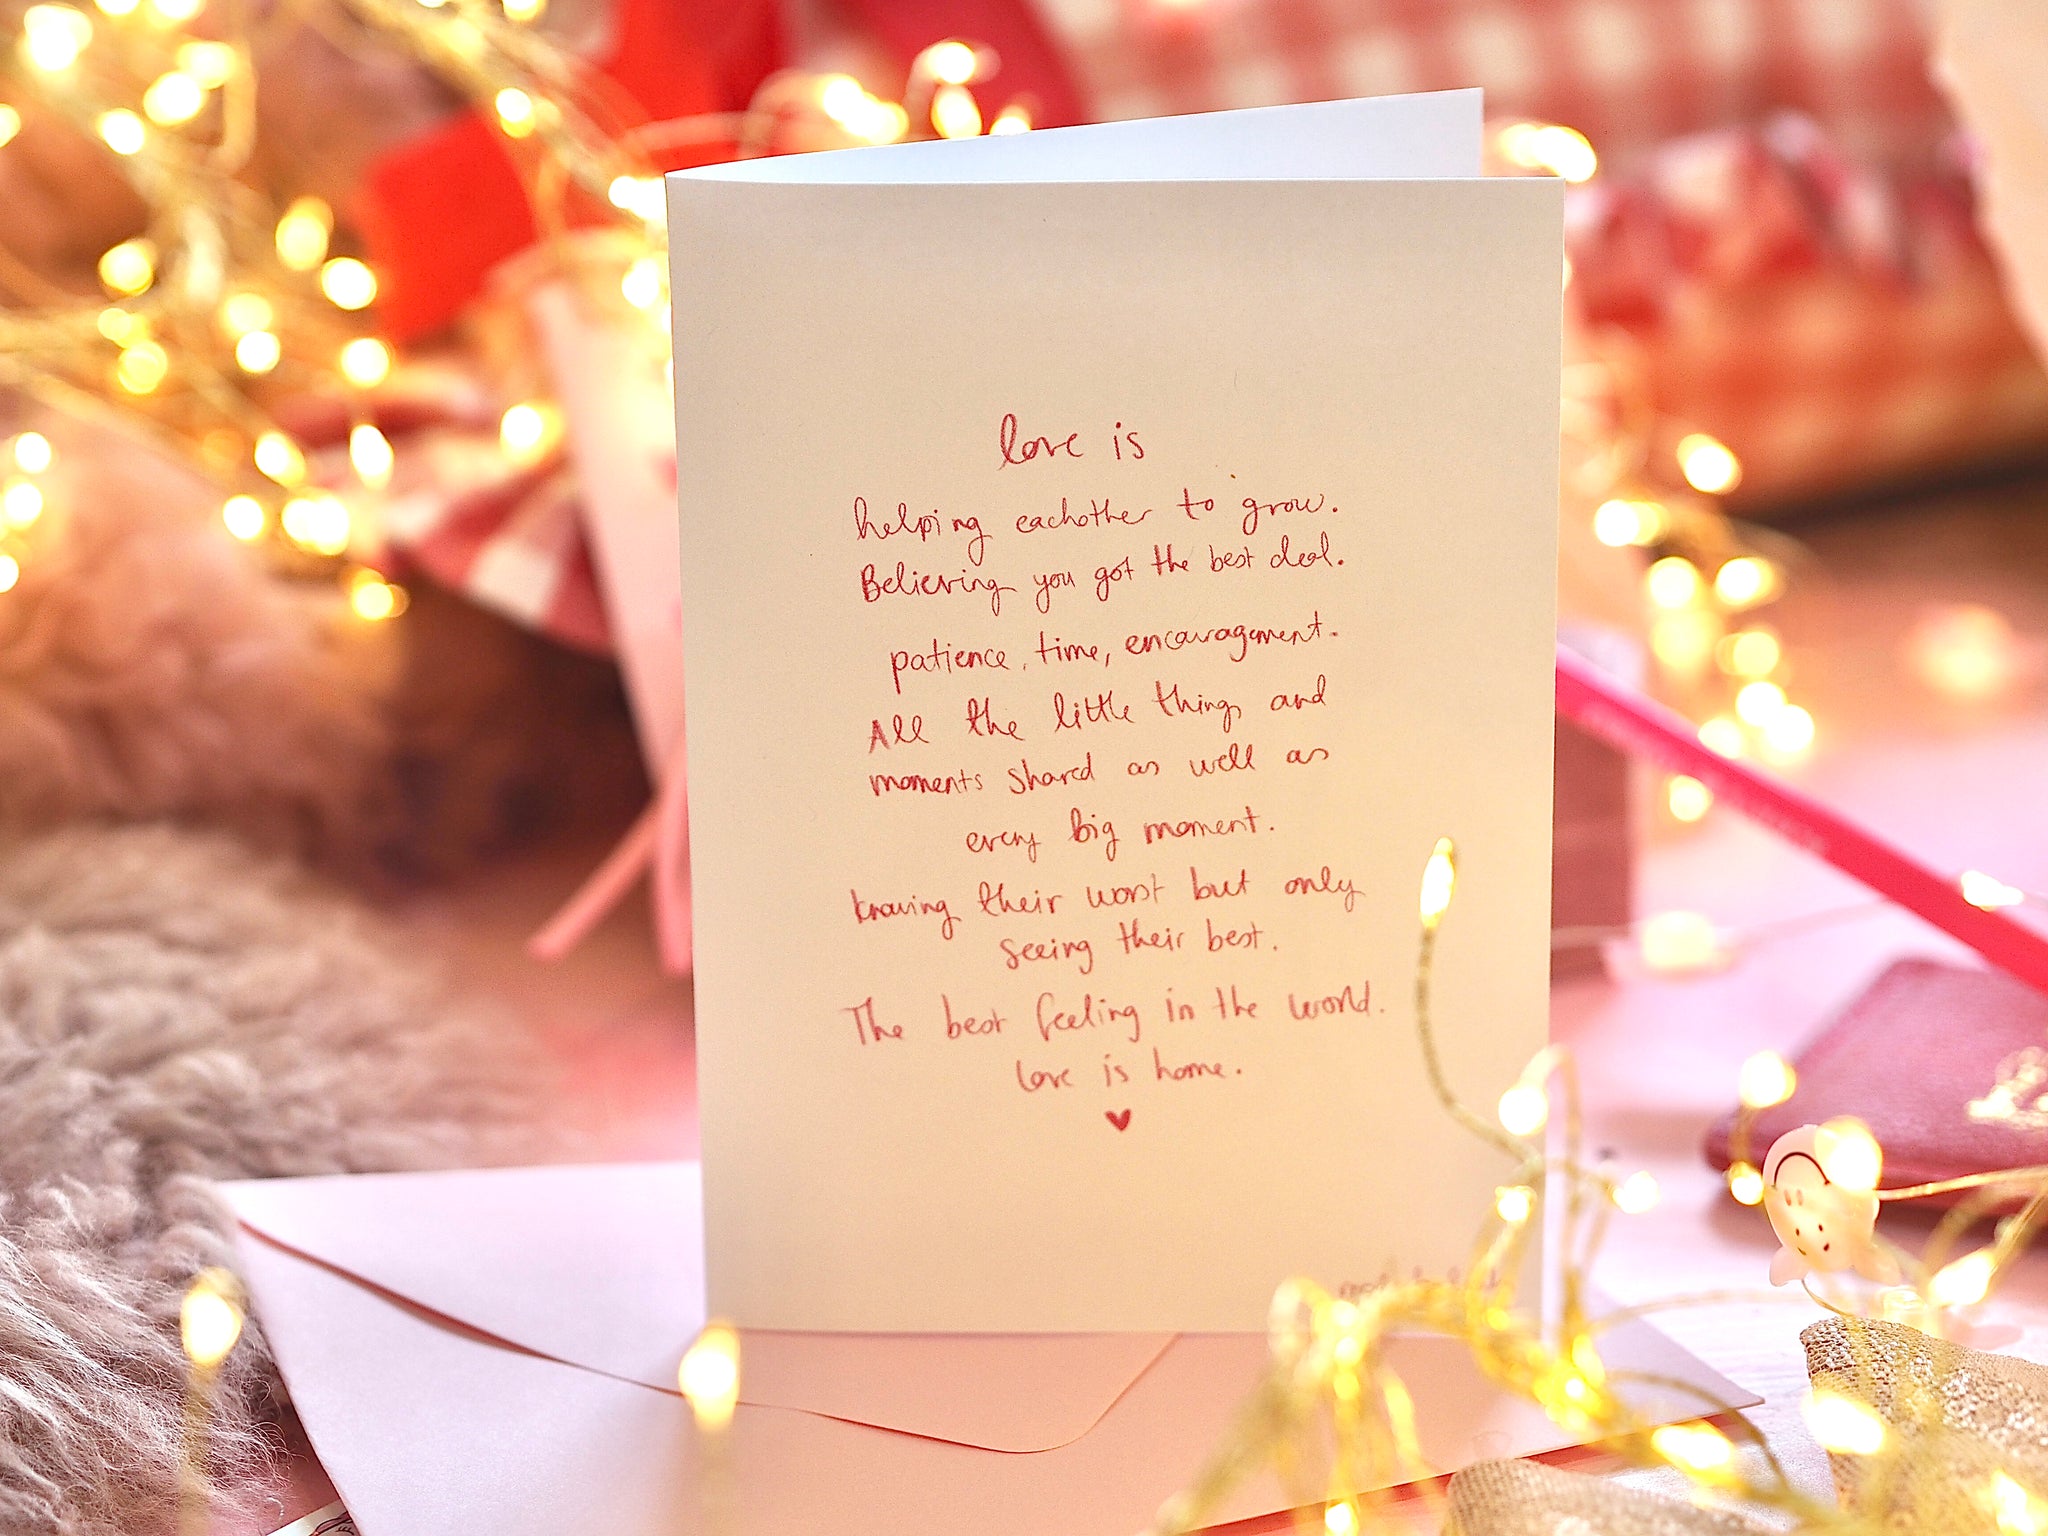 love is
helping eachother to grow.
Believing you got the best deal.
patience, time, encouragement.
All the little things and
moments shared as well as
every big moment.
knowing their worst but only
seeing their best.
The best feeling in the world.
love is home.